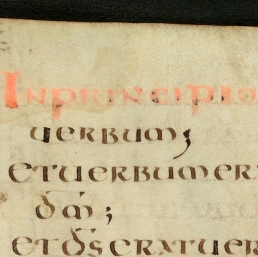 INPRINCIPIO
UERBUM;
ETUERBUMERA
dm̄;
ETdS̄ERATUER